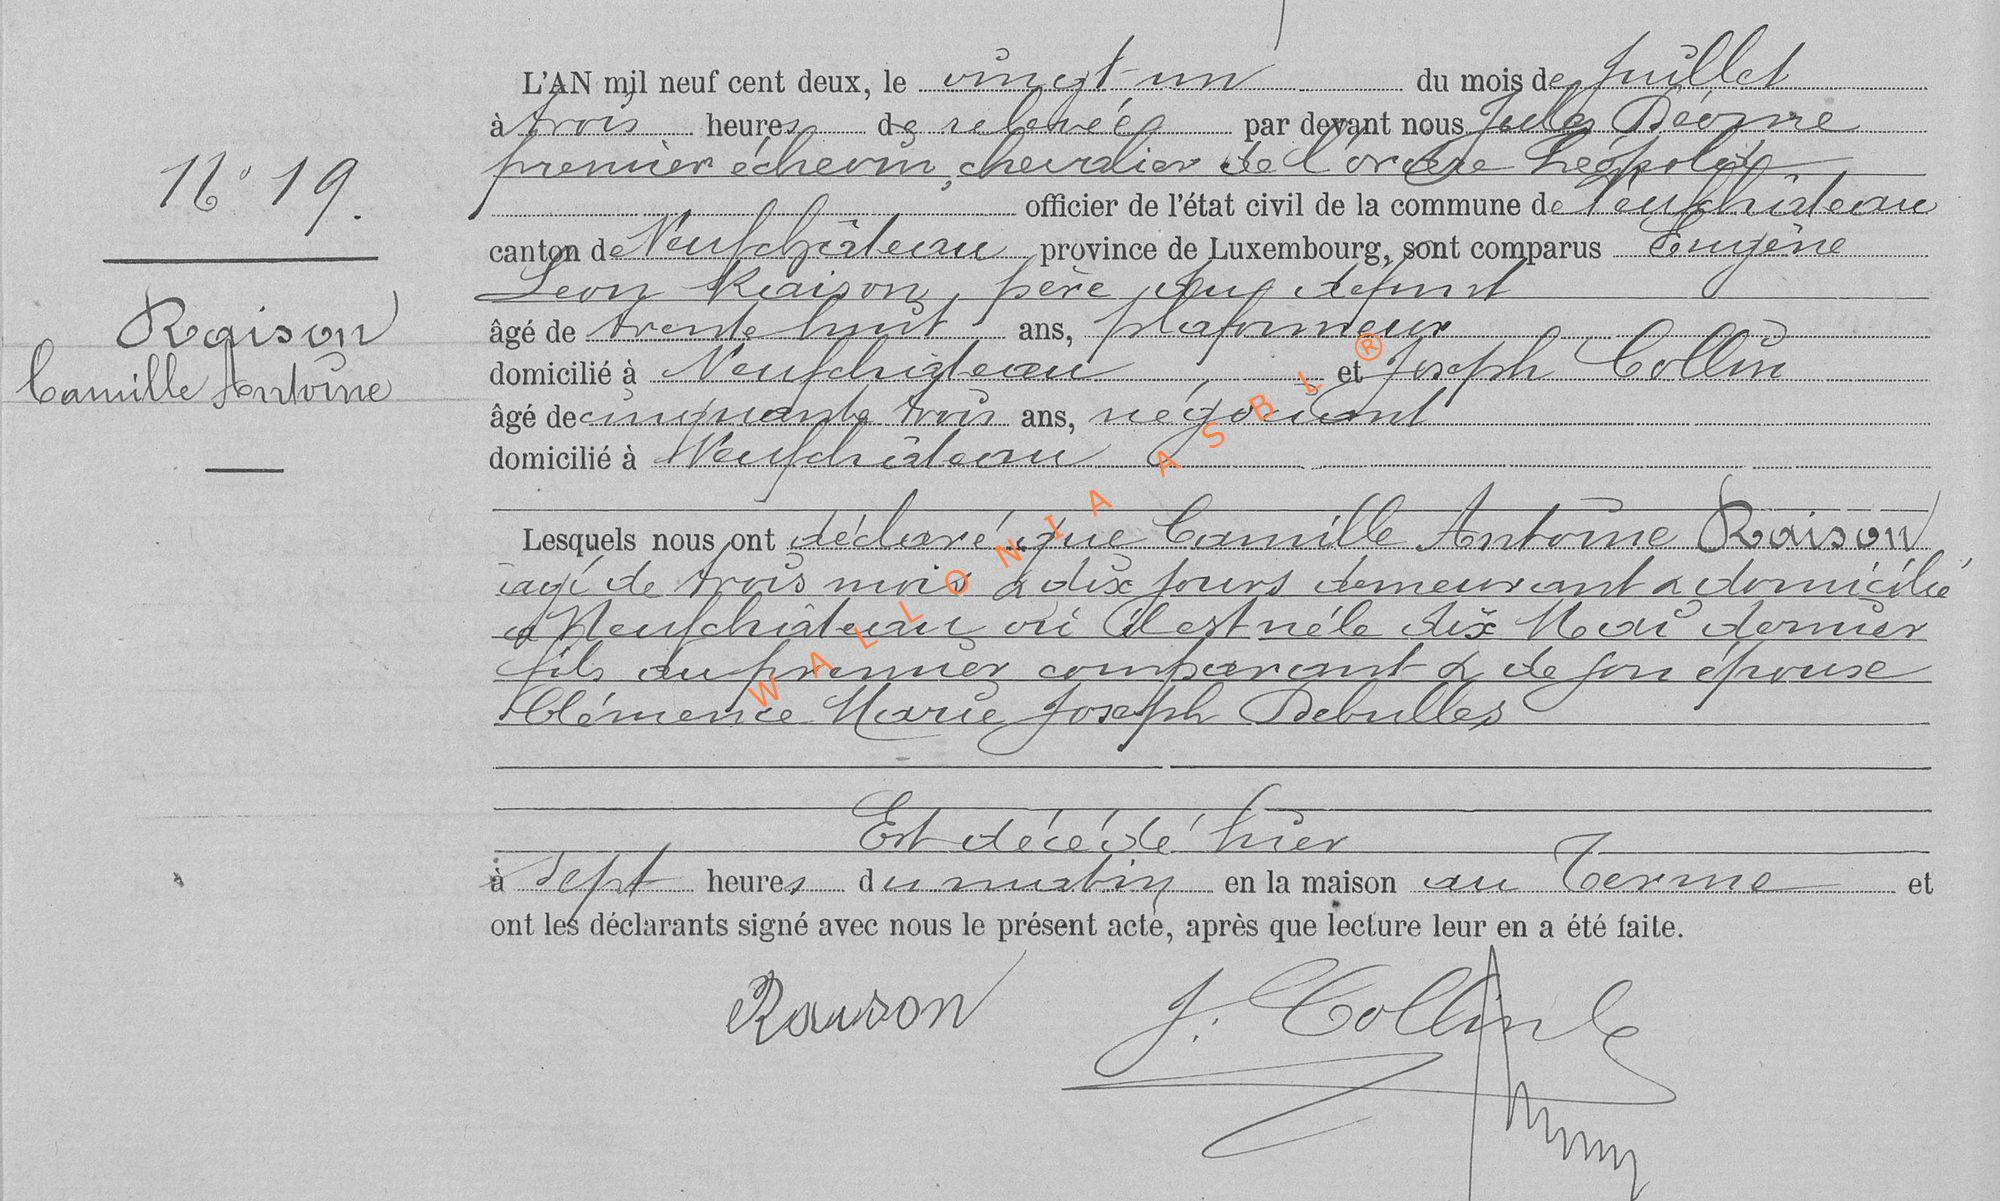 L'AN mil neuf cent deux, le vingt-un du mois de juillet
à trois heures de relevée par devant nous Jules
premier échevin, chevalier de l'ordre Léopold
officier de l'état civil de la commune de Neufchâteau
N° 19.
canton de Neufchâteau province de Luxembourg, sont comparus Eugène
Léon Raison, père du defunt
Raison
âgé de trente huit ans, plafonneur
Camille Antoine
domicilié à Neufchâteau et Joseph Collin
âgé de cinquante trois ans, négociant
domicilié à Neufchâteau
Lesquels nous ont déclaré que Camille Antoine Raison
agé de trois mois & dix jours demeurant & domicilié
à Neufchâteau où il est né le dix Mai dernier
fils du premier comparant & de son épouse
Clémence Marie Joseph Debulles
Est décédé hier
à sept heures du matin en la maison au Terme et
ont les déclarants signé avec nous le présent acte, après que lecture leur en a été faite.
Raison J. Collin
WALLONIA ASBL ®